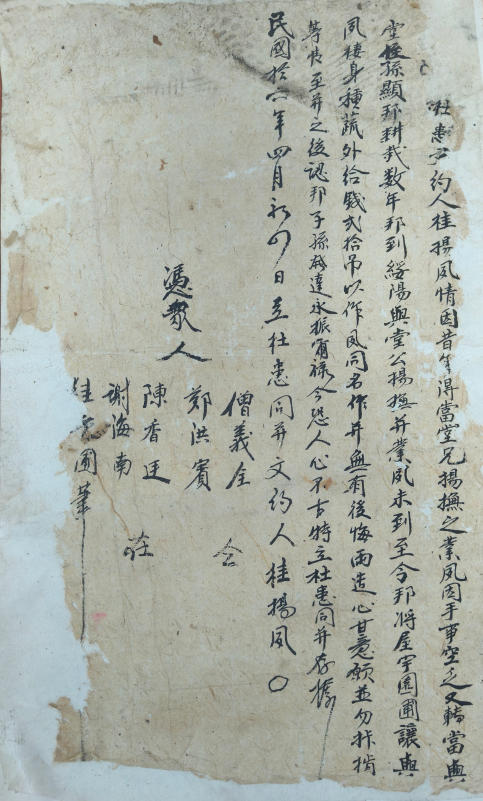 杜患字約人桂楊凤情因昔年得當堂兄揚撫之業凤因手事空乏又轉當與
堂侄孫顯邦耕栽数年邦到綏陽與堂公楊撫并業凤未到至今邦将屋宇園圃讓與
凤棲身種蔬外給錢弍拾吊以作凤同名作并無有後悔両造心甘意願並勿拤掯
等情至并之後認邦子孫發達永振甯祿今恐人心不古特立杜患同并存據
民國拾六年四月初四日立杜患同并文約人桂楊凤〇
憑衆人
僧義全
鄭洪賓
仝
陳香廷
謝海南
在
桂 圃筆